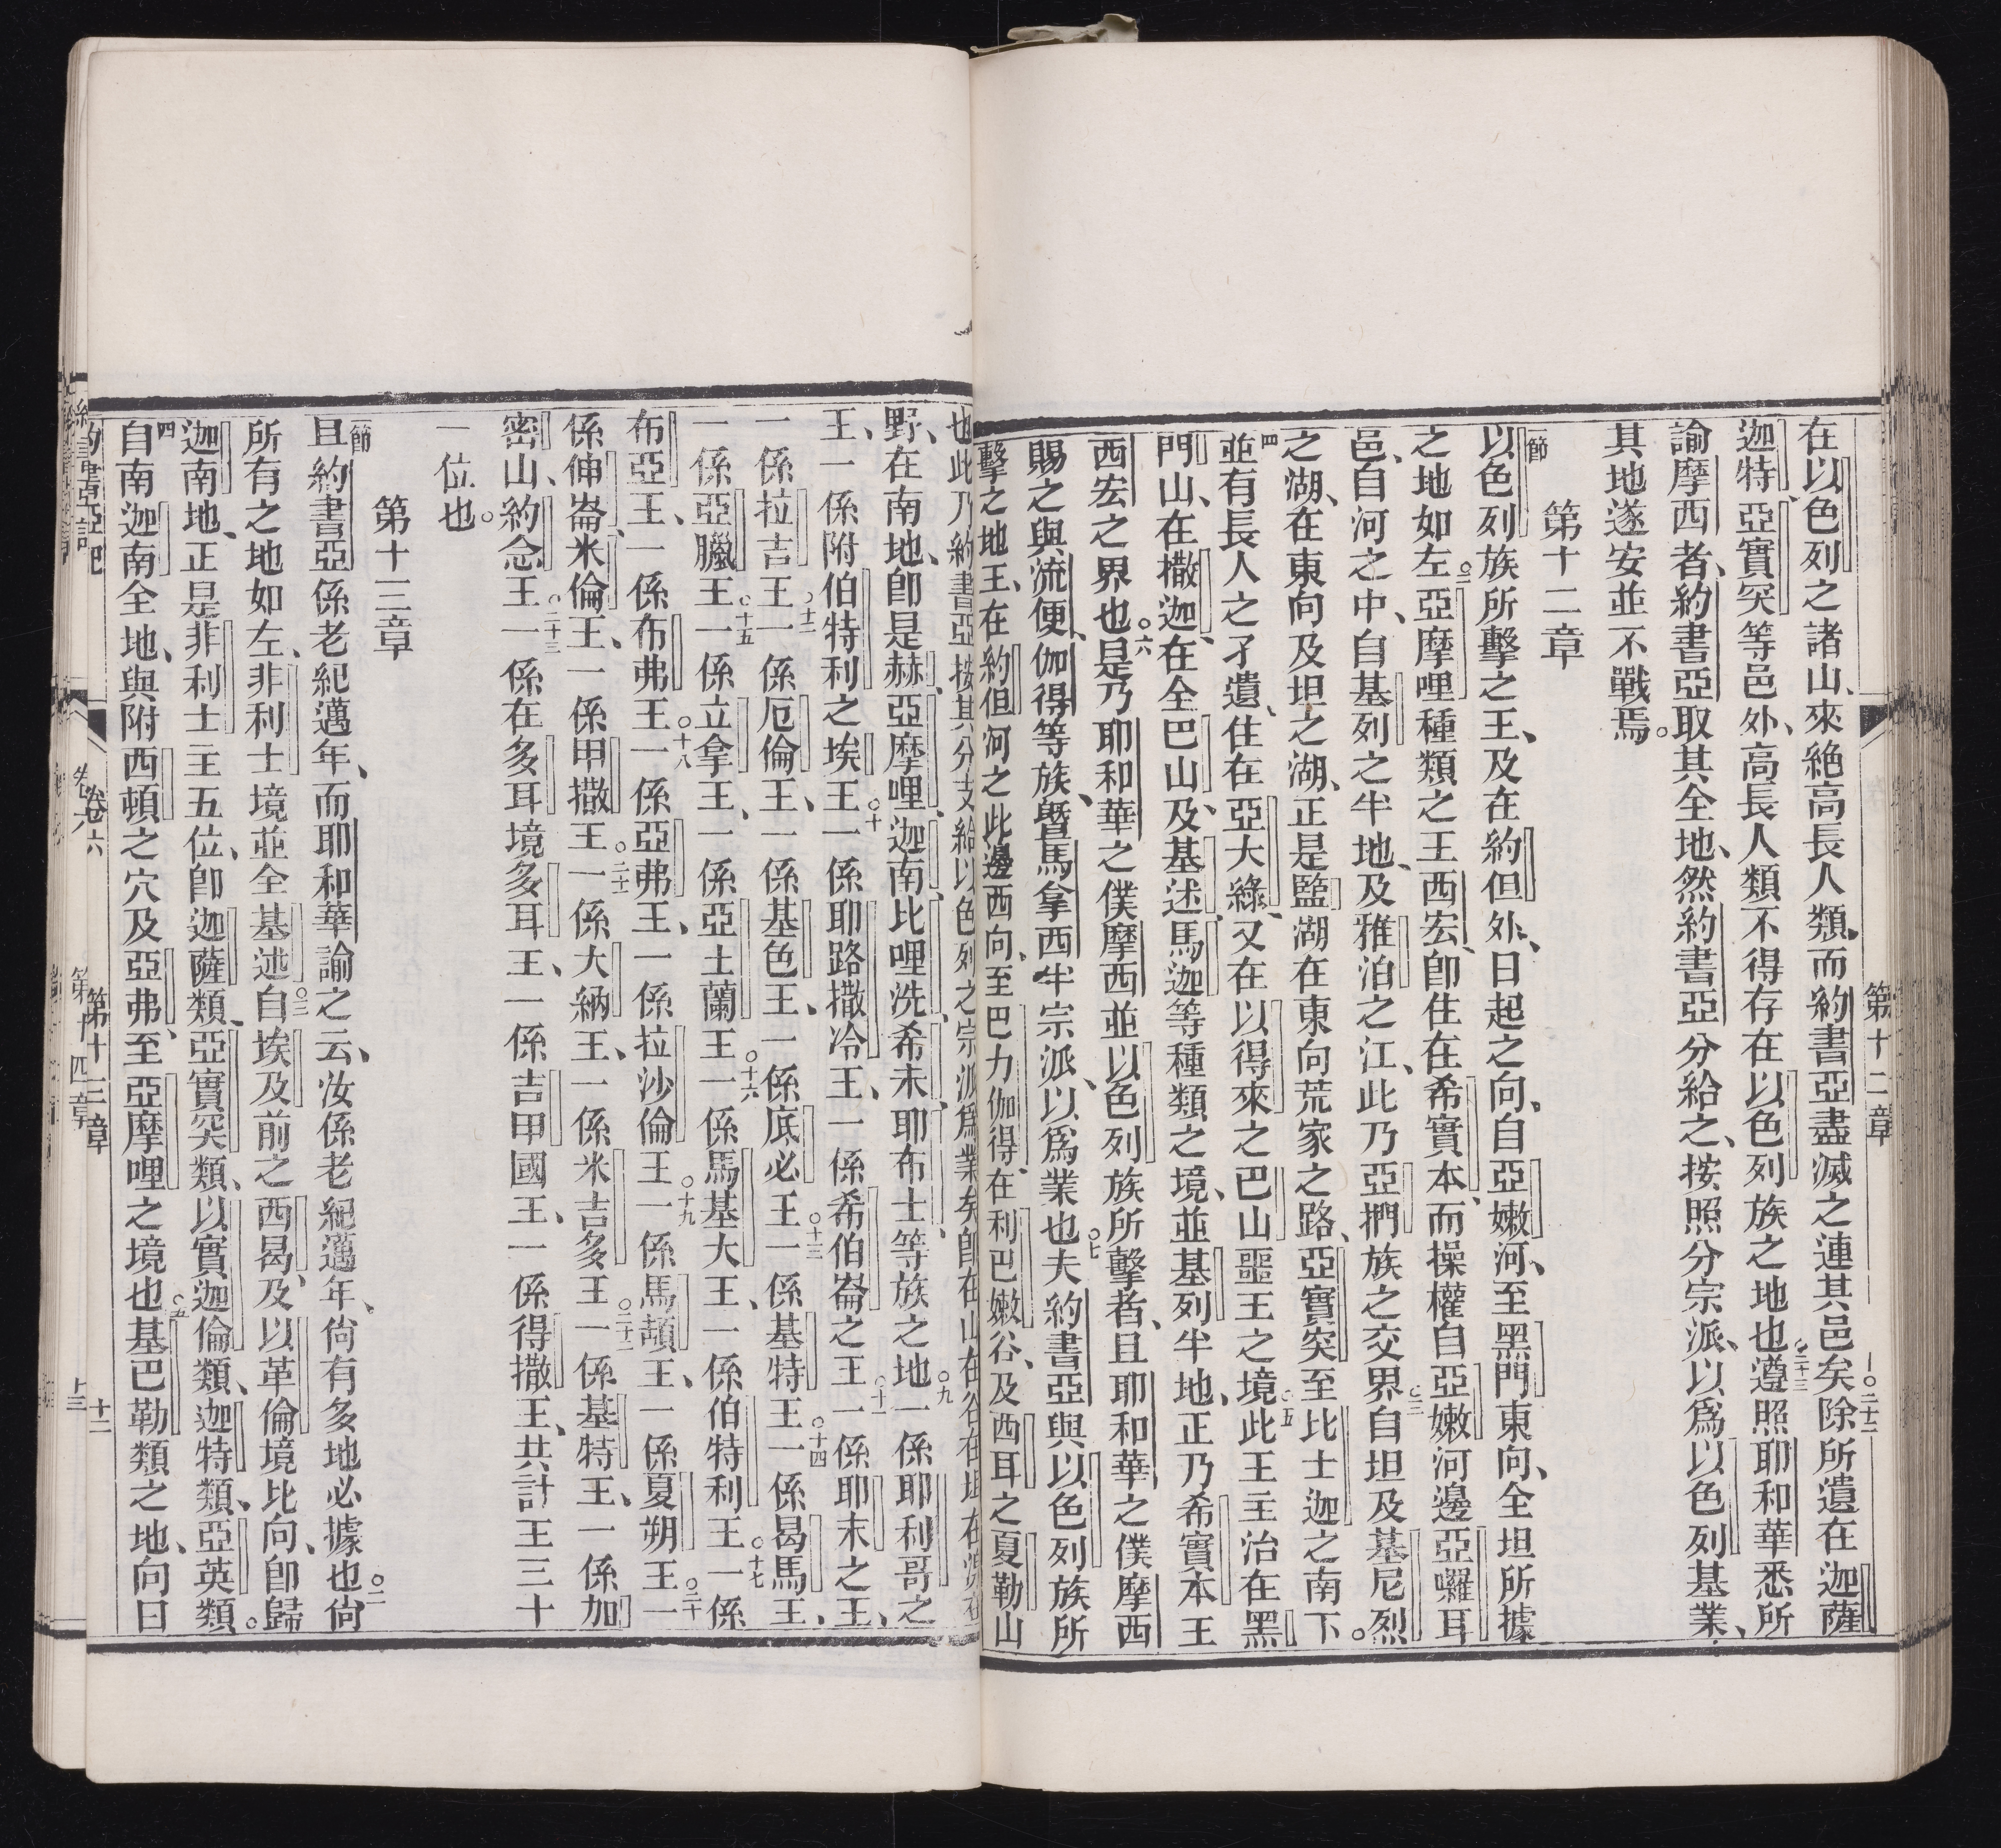 第十二章
在以色列之諸山、來絶高長人類、而約書亞盡滅之連其邑矣○二十二除所遺在迦薩
迦特、亞實突等邑外、高長人類不得存在以色列族之地也○二十三遵照耶和華悉所
諭摩西者、約書亞取其全地、然約書亞分給之、按照分宗派、以爲以色列基業、
其地遂安並不戰焉。
第十二章
一節以色列族所擊之王、及在約但外、日起之向、自亞嫩河、至黑門東向、全坦所據
之地如左○二亞摩哩種類之王西宏、卽住在希實本、而操權自亞嫩河邊亞囉耳
邑、自河之中、自基列之半地、及雅泊之江、此乃亞捫族之交界○三自坦及基尼烈
之湖、在東向及坦之湖、正是監湖在東向荒家之路、亞實突至比士迦之南下。
四並有長人之孑遺、住在亞大綠、又在以得來之巴山噩王之境○五此王主治在黑
門山、在撒迦、在全巴山、及基述、馬迦等種類之境、並基列半地、正乃希實本王
西宏之界也○六是乃耶和華之僕摩西並以色列族所擊者、且耶和華之僕摩西
賜之與流便、伽得等族、曁馬拿西半宗派、以爲業也○七夫約書亞與以色列族所
擊之地王、在約但河之此邊西向、至巴力伽得、在利巴嫩谷、及西耳之夏勒山
也此乃約書亞按其分支給以色列之宗派爲業矣卽在山在谷在坦在
野、在南地、卽是赫、亞摩哩、迦南、比哩洗、希未、耶布士等族之地○九一係耶利哥之
王、一係附伯特利之埃王○十一係耶路撒冷王、一係希伯崙之王○十一一係耶末之王、
一係拉吉王○十二一係厄倫王、一係基色王、一係底必王○十三一係基特王○十四一係曷馬王、
一係亞臘王○十五一係立拿王、一係亞土蘭王○十六一係馬基大王、一係伯特利王○十七一係
布亞王、一係布弗王○十八一係亞弗王、一係拉沙倫王○十九一係馬頓王、一係夏朔王○二十一
係伸崙米倫王、一係甲撒王○二十一一係大納王、一係米吉多王○二十二一係基特王、一係加
密山、約念王○二十三一係在多耳境多耳王、一係吉甲國王、一係得撒王、共計王三十
一位也。
第十三章
一節且約書亞係老紀邁年、而耶和華諭之云、汝係老紀邁年、尙有多地必據也○二尙
所有之地如左、非利士境並全基述○三自埃及前之西曷、及以革倫境比向、卽歸
迦南地、正是非利士主五位、卽迦薩類、亞實突類、以實迦倫類、迦特類、亞英類。
四自南迦南全地、與附西頓之穴及亞弗、至亞摩哩之境也○五基巴勒類之地、向日
約書亞記 卷六 第十三章 十二
卷六 第十四章 十三